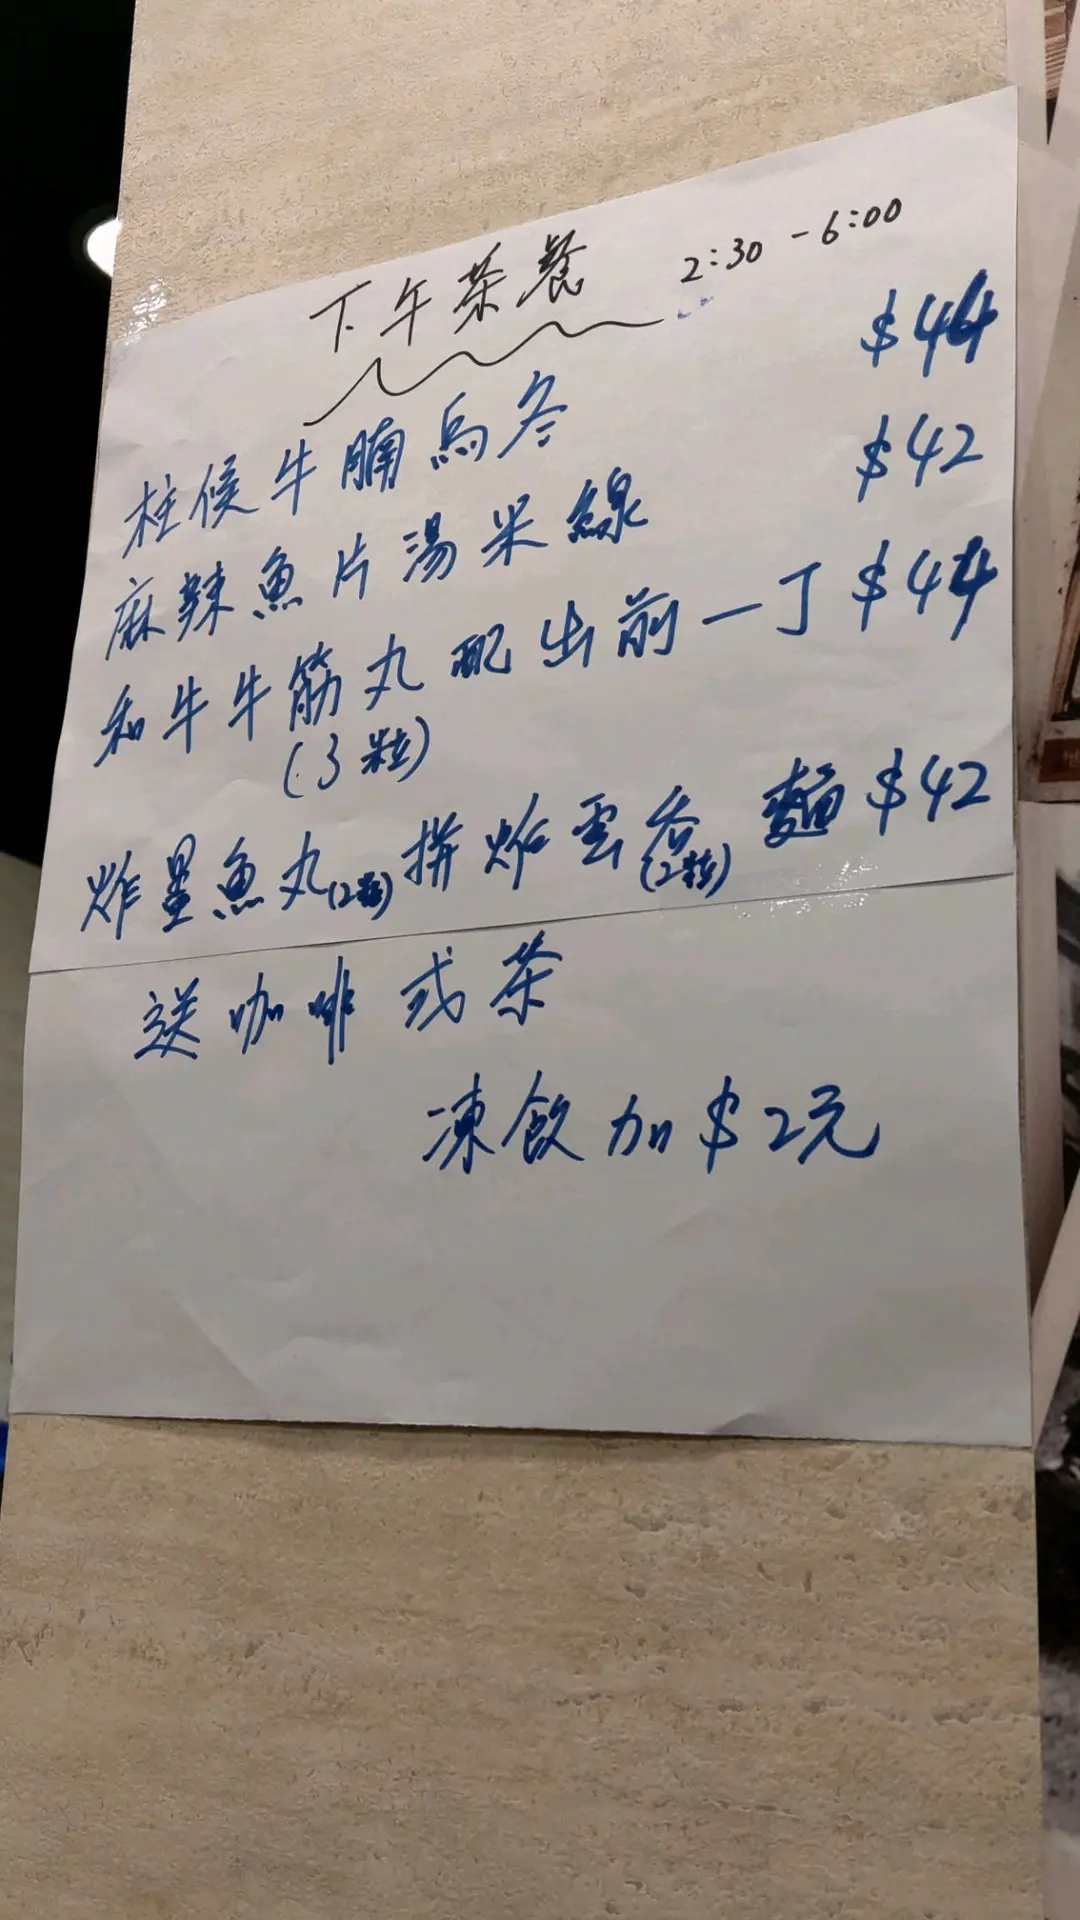 下午茶餐 2:30 - 6:00
柱侯牛腩烏冬 $44
麻辣魚片湯米線 $42
和牛牛筋丸配出前一丁 $44
(3粒)
炸墨魚丸(2粒)拼炸雲吞(2粒)麵 $42
送咖啡或茶
凍飲加$2元